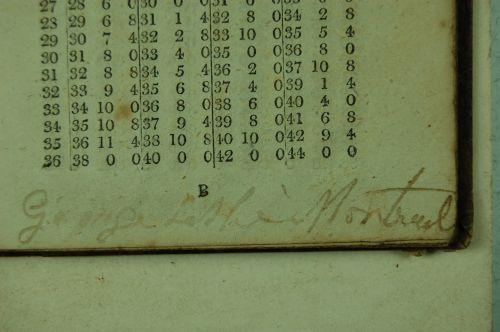 27 28 6 0 30 0 0
28 29 6 8 31 1 4 32 8 0 34 2 8
29 30 7 4 32 2 8 33 10 0 35 5 4
30 31 8 0 33 4 0 35 0 0 36 8 0
31 32 8 8 34 5 4 36 2 0 37 10 8
32 33 9 4 35 6 8 37 4 0 39 1 4
33 34 10 0 36 8 0 38 6 0 40 4 0
34 35 10 8 37 9 4 39 8 0 41 6 8
35 36 11 4 38 10 8 40 10 0 42 9 4
36 38 0 0 40 0 0 42 0 0 44 0 0
B
George Montreal